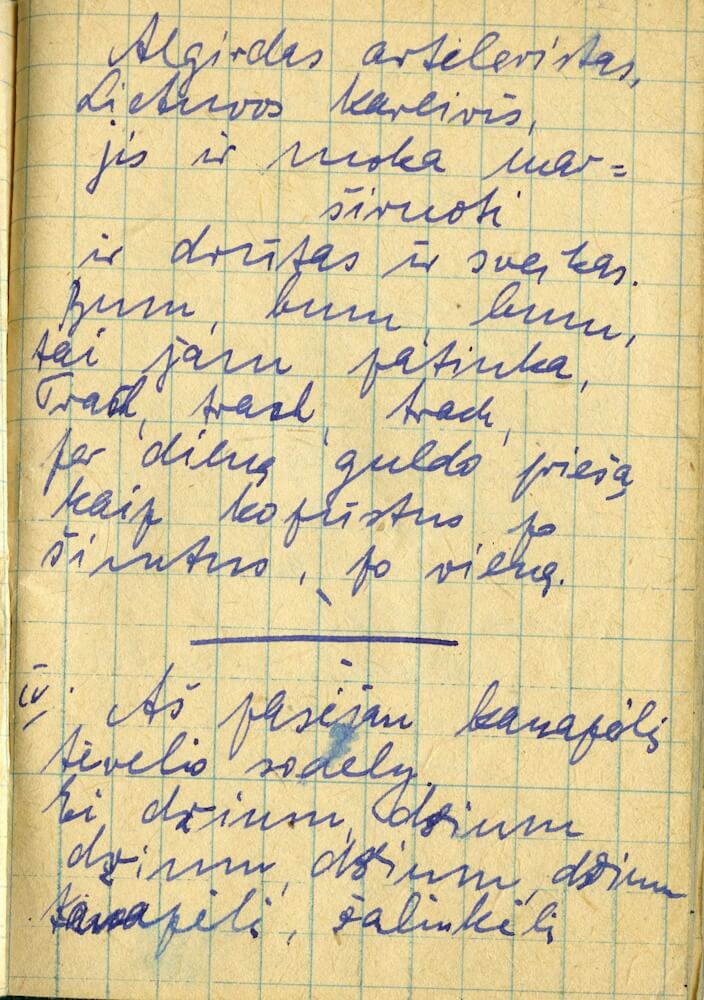 Algirdas arteleristas,
Lietuvos kareivis,
jis ir moka mar=
širuoti
ir drūtas ir sveikas.
Bum, bum, bum,
tai jam patinka,
Trach, trach, trach,
per dieną guldo priešą
kaip kopūstus po
šimtus, po vieną.
IV. Aš pasėjau kanapėlį
tėvelio sodely.
Ei, dzium, dzium
dzium, dzium, dzium
kanapėlį, žaliukėlį